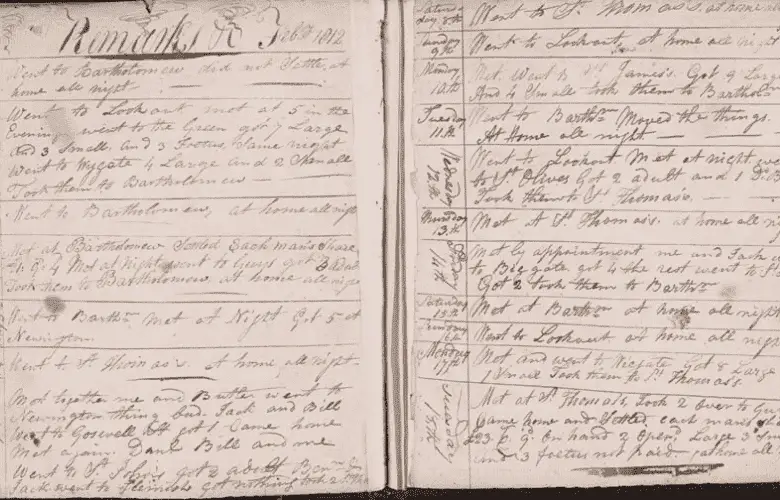 Remarks &c Feb 1812
Went to Bartholomew did not Settle, at
home all night
Went to Look out met at 5 in the
Evening went to the Green got 7 Large
and 3 Small and 3 Foetus, Same night
Went to Wygate 4 Large and 2 Small
Took them to Bartholomew
Went to Bartholomew, at home all night
Met at Bartholomew Settled Each man's Share
Met at Night went to Guys got
Took them to Bartholomew at home all night
Went to Barthw Met at Night Got 5 at
Newington
Went to St Thomas's at home all night
Met together me and Butler went to
Newington thing bad. Jack and Bill
Went to Goswell St got 1 Came home
Met again. Danl Bill and me
Went to St Johns got 2 adult Benm
Jack went to Flemish Got nothing took 2
Saturday 8th Went to St Thomas's. at home
Sunday 9th Went to Lookout, at home all night
Monday 10th Met Went to St James's. Got 9 Large
And 4 Small took them to Barthol
Tuesday 11th Went to Barthw Moved the things.
At Home all night
Wednesday 12th Went to Lookout Met at night
to St Olives Got 2 adult and 1
Took them to St Thomas's.
Thursday 13th Met at St Thomas's. at home all
14th Met by appointment me and Jack
to Big gate got 4 the rest went to
Got 2 took them to Barthw
Saturday 15th Met at Barthw at home all night
16th Went to Lookout at home all night
Monday 17th Met and went to Got 8 Large
1 Small Took them to St Thomas's.
Tuesday 18th Met at St Thomas's, Took 2 over to
Came home and Settled each man's
On hand 2 Open, Large 3
and 3 foetus not paid. at home all